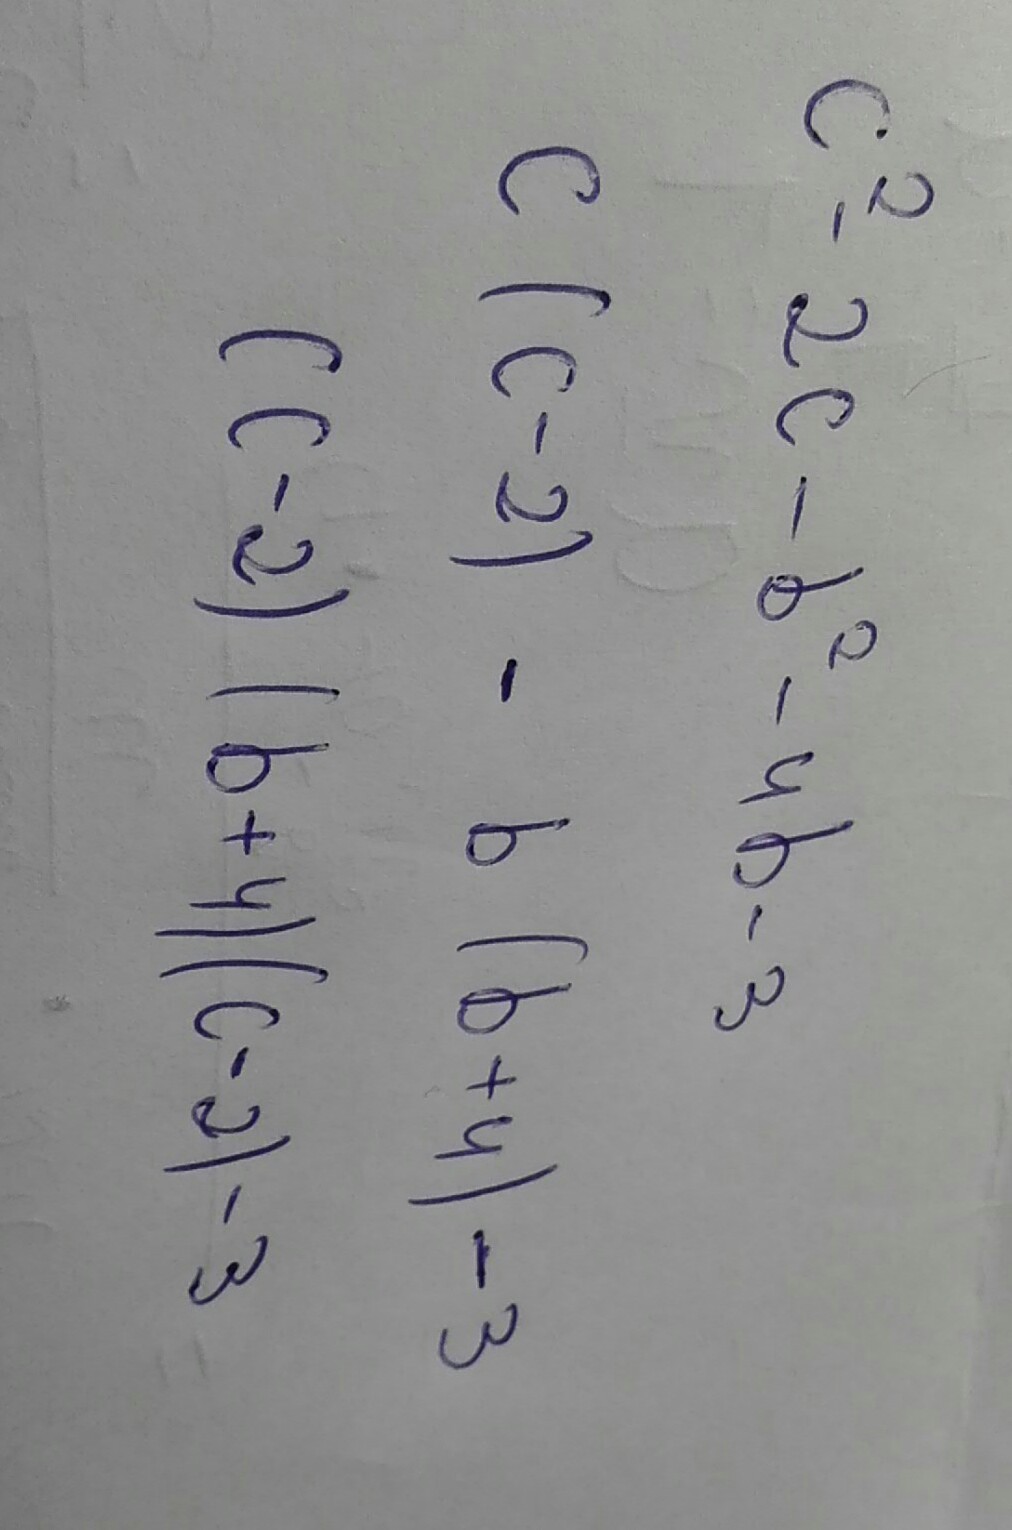 c²-2c-b²-4b-3
c(c-2)-b(b+4)-3
(c-2)(b+4)(c-2)-3